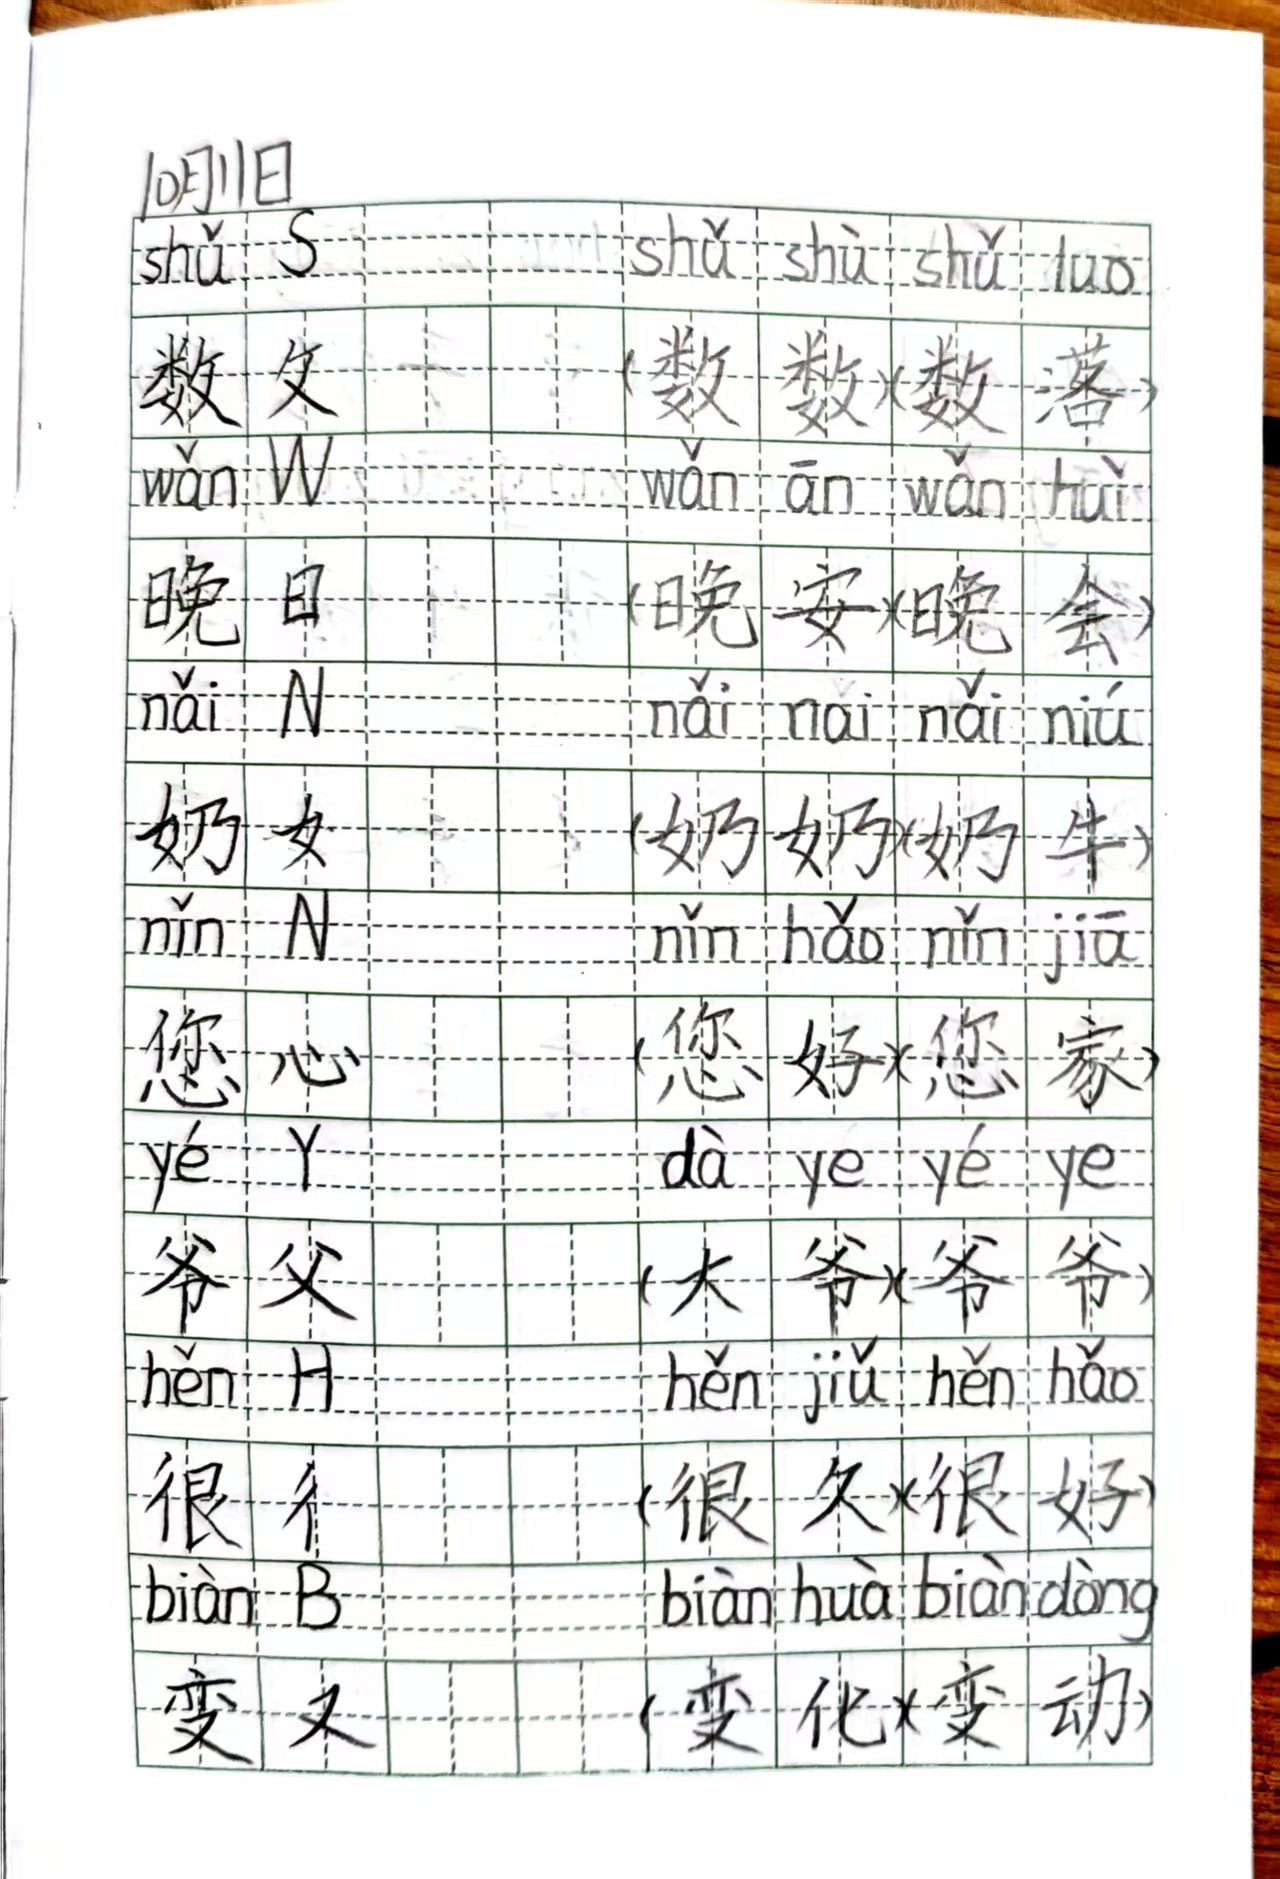 10月11日
shǔ S shǔ shù shǔ luo
数 攵 (数 数)(数 落)
wǎn W wǎn ān wǎn huì
晚 日 (晚 安)(晚 会)
nǎi N nǎi nai nǎi niú
奶 女 (奶 奶)(奶 牛)
nǐn N nǐn hǎo nǐn jiā
您 心 (您 好)(您 家)
yé Y dà ye yé ye
爷 父 (大 爷)(爷 爷)
hěn H hěn jiǔ hěn hǎo
很 彳 (很 久)(很 好)
biàn B biàn huà biàn dòng
变 又 (变 化)(变 动)